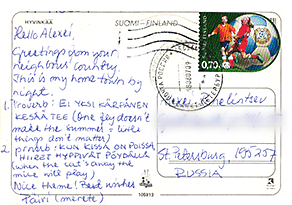 HYVINKÄÄ
SUOMI - FINLAND
Hello Alexei,
Greetings from your
neighbour country.
This is my home town by
night.
1. Proverb: EI YKSI KÄRPÄNEN
KESÄÄ TEE (One fly doesn't
make the summer = little
things don't matter)
2. proverb: KUN KISSA ON POISSA,
HIIRET HYPPIVÄT PÖYDÄLLÄ
(when the cat's away the
mice will play)
Nice theme! Best wishes
Päivi (merete)
0,70
St. Petersburg, 195257
RUSSIA
106913